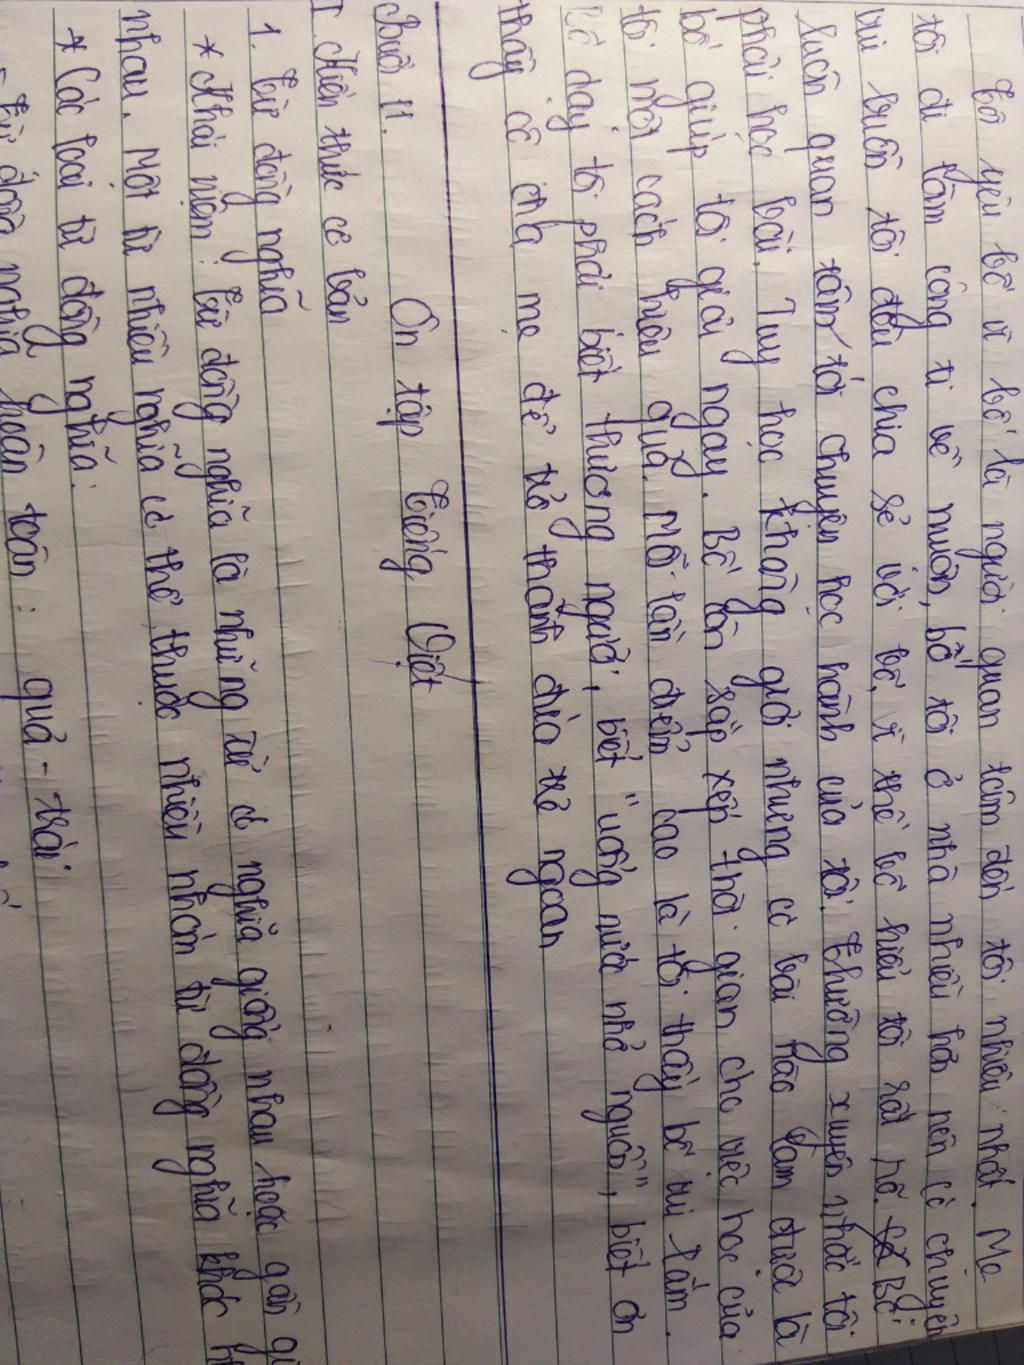 Tôi yêu bố vì bố là người quan tâm đến tôi nhiều nhất. Mẹ
tôi đi làm công ti về muộn, bố tôi ở nhà nhiều hơn nên có chuyện
vui buồn tôi đều chia sẻ với bố, vì thế bố hiểu tôi rất rõ. Bố
luôn quan tâm tới chuyện học hành của tôi. Thường xuyên nhắc tôi
phải học bài. Tuy học không giỏi nhưng có bài nào làm được là
bố giúp tôi giải ngay. Bố còn sắp xếp thời gian cho việc học của
tôi một cách hiệu quả. Mỗi lần điểm cao là tôi thấy bố vui lắm.
Bố dạy tôi phải biết thương người, biết "uống nước nhớ nguồn", biết ơn
thầy cô cha mẹ để trở thành đứa trẻ ngoan
Buổi 11. Ôn tập Tiếng Việt
I. Kiến thức cơ bản
1. Từ đồng nghĩa
* Khái niệm: Từ đồng nghĩa là những từ có nghĩa giống nhau hoặc gần
nhau. Một từ nhiều nghĩa có thể thuộc nhiều nhóm từ đồng nghĩa khác
* Các loại từ đồng nghĩa:
- Từ đồng nghĩa hoàn toàn: quả - trái